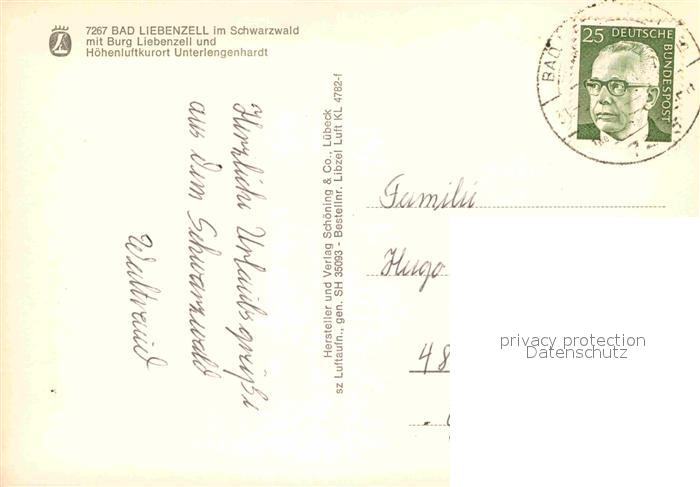 7267 BAD LIEBENZELL im Schwarzwald
mit Burg Liebenzell und
Höhenluftkurort Unterlengenhardt
Herzliche Urlaubsgrüße
aus dem Schwarzwald
Waltraud
Hersteller und Verlag Schöning & Co., Lübeck
sz Luftaufn., gen. SH 35093 - Bestellnr. Libzel Luft KL 4782-f
25 DEUTSCHE
BUNDESPOST
BAD
Familie
Hugo
48
privacy protection
Datenschutz